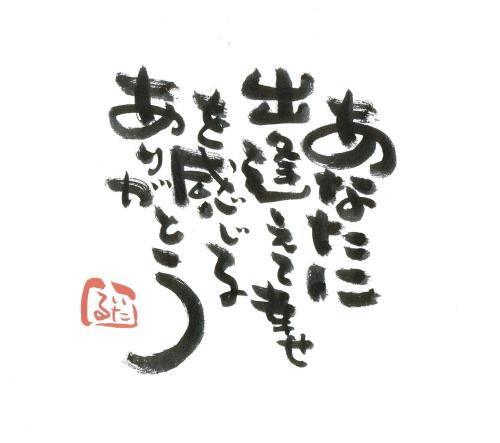 あなたに
出逢えて幸せ
を感じる
ありがとう